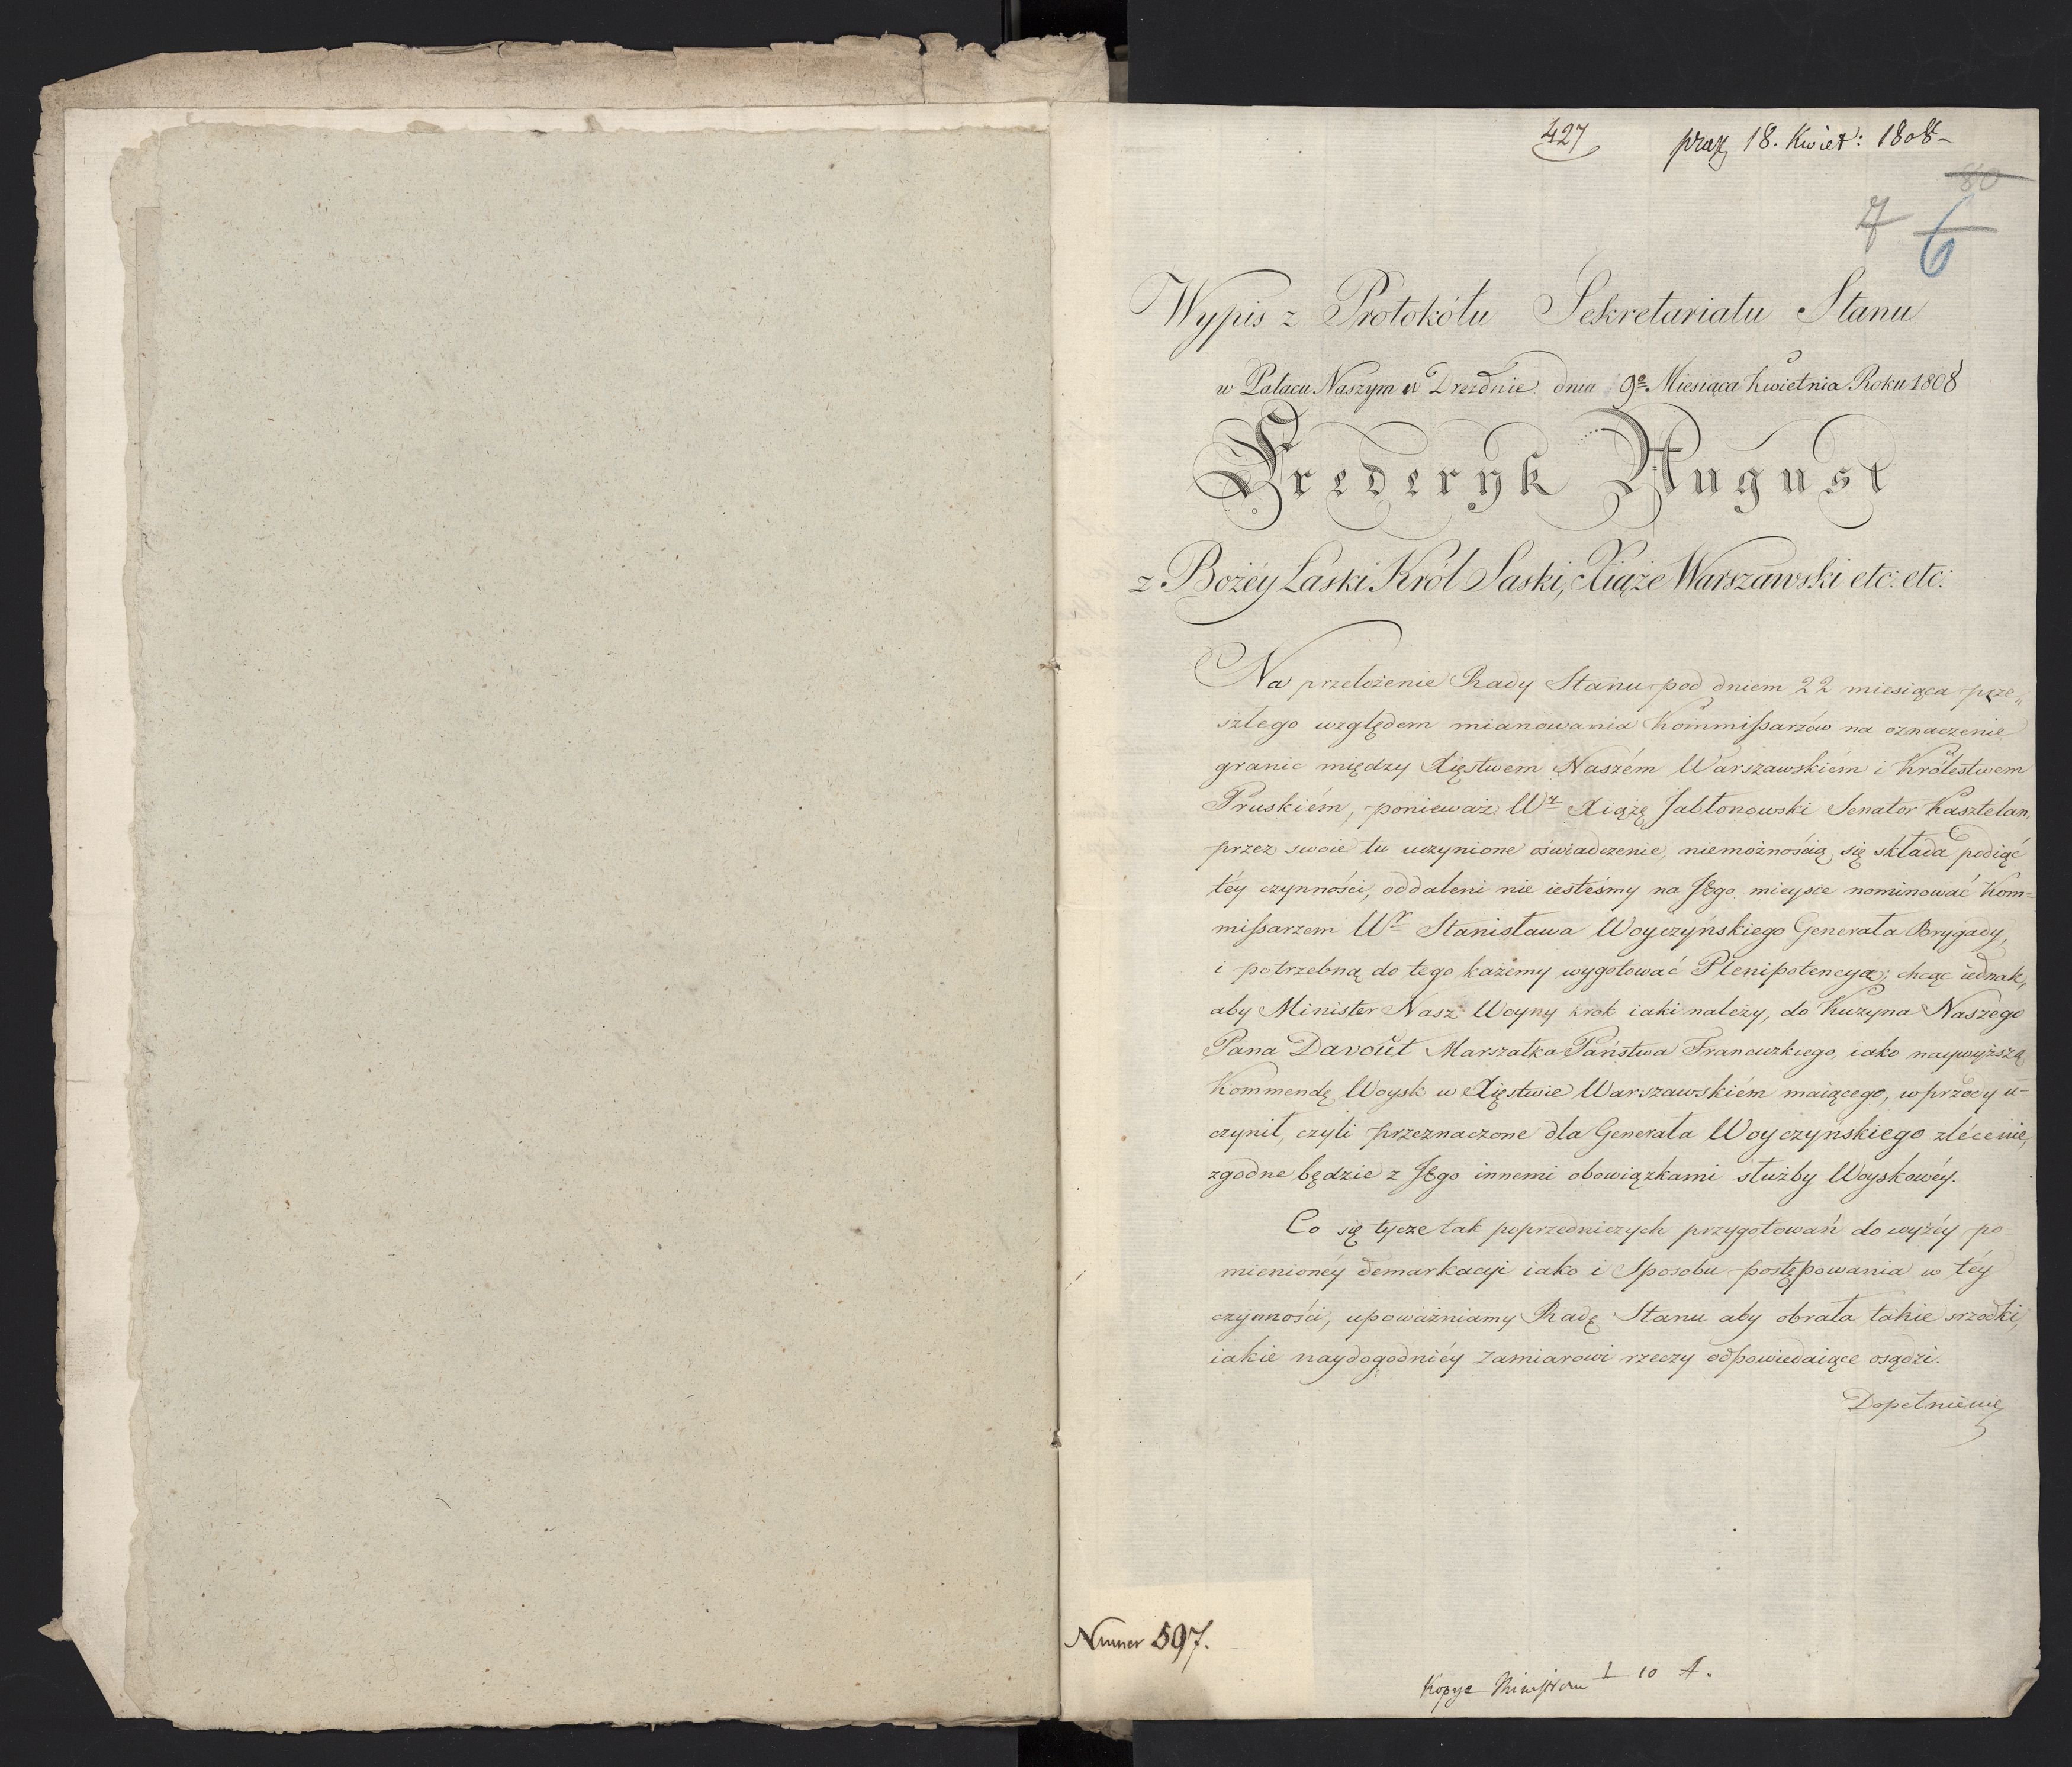 427 praes 18. Kwiet: 1808
80
7 6
Wypis z Protokółu Sekretariatu Stanu
w Pałacu Naszym w Dreźnie dnia 9º Miesiąca Kwietnia Roku 1808
Frederyk August
z Bożéy Łaski Król Saski, Xiąże Warszawski etc: etc:
Na przełożenie Rady Stanu pod dniem 22 miesiąca prze„
szłego względem mianowania Kommissarzów na oznaczenie
granic między Xięstwem Naszém Warszawskiém i Królestwem
Pruskiém, ponieważ Wr Xiążę Jabłonowski Senator Kasztelan,
przez swoie tu uczynione oświadczenie, niemożnością się składa podiąć
téy czynności, oddaleni nie iesteśmy na JEgo mieysce nominować Kom=
missarzem Wr Stanisława Woyczyńskiego Generała Brygady,
i potrzebną do tego każemy wygotować Plenipotencyą; chcąc iednak,
aby Minister Nasz Woyny krok iaki należy, do Kuzyna Naszego
Pana Davout Marszałka Państwa Francuzkiego, iako naywyższą
Kommendę Woysk w Xięstwie Warszawskiém maiącego, wprzódy u-
czynił, czyli przeznaczone dla Generała Woyczyńskiego zlécenie,
zgodne będzie z JEgo innemi obowiązkami służby Woyskowéy.
Co się tycze tak poprzedniczych przygotowań do wyżéy po-
mienionéy demarkacyi iako i Sposobu postępowania w téy
czynności, upoważniamy Radę Stanu aby obrała takie srzodki,
iakie naydogodniéy zamiarowi rzeczy odpowiedaiące osądzi.
Dopełnienie
Numer 597.
Kopye 10